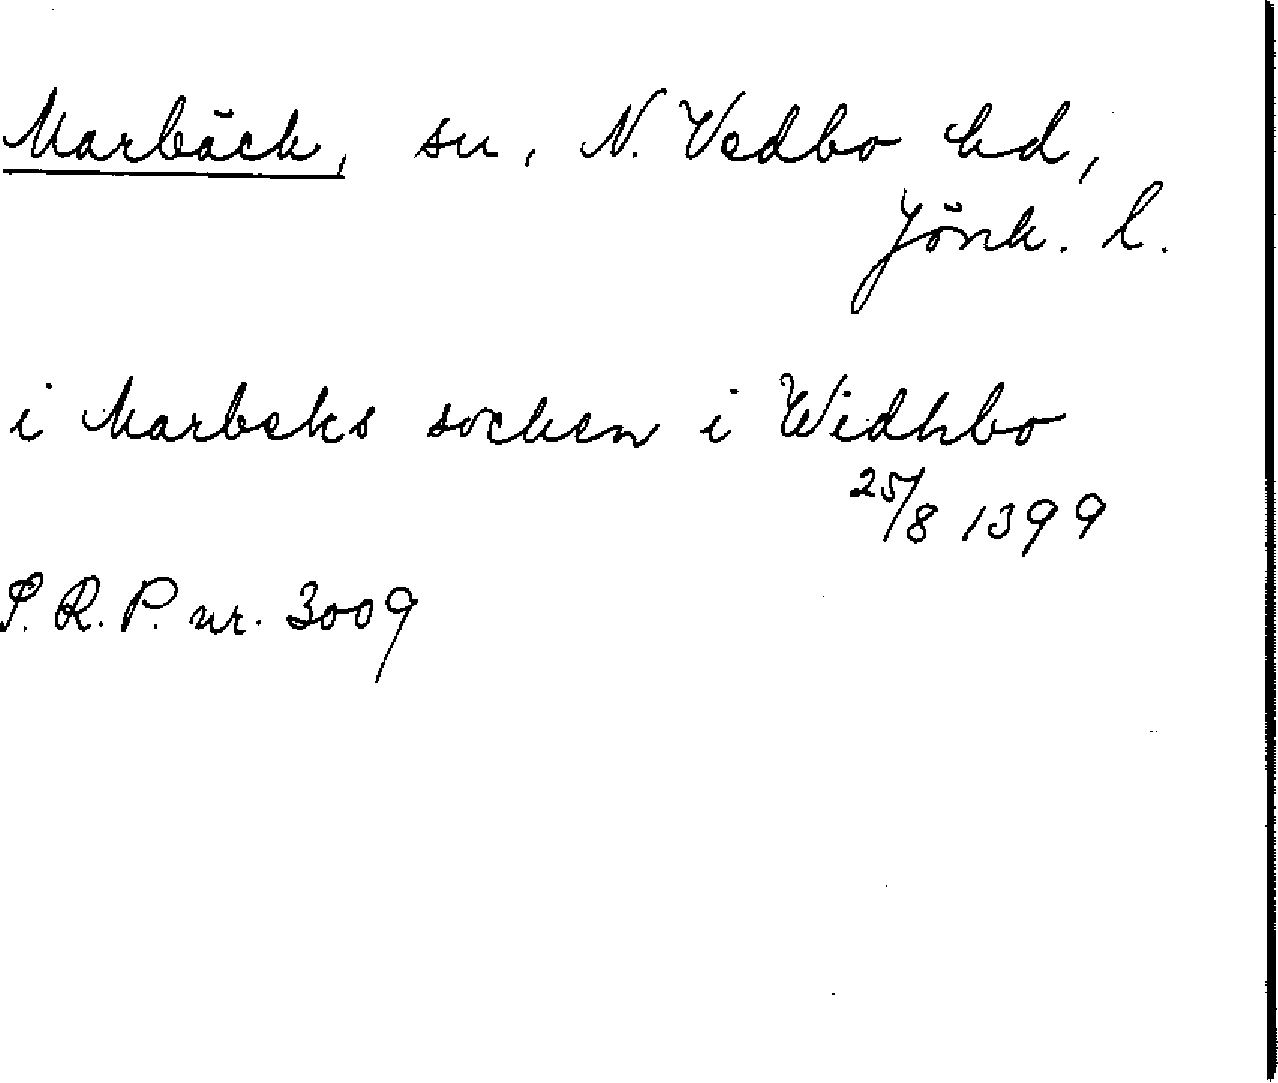 Marbäck, sn, N. Vedbo hd,
Jönk. l.
i Marbeks socken i Widhbo
25/8 1399
S. R. P. nr. 3009